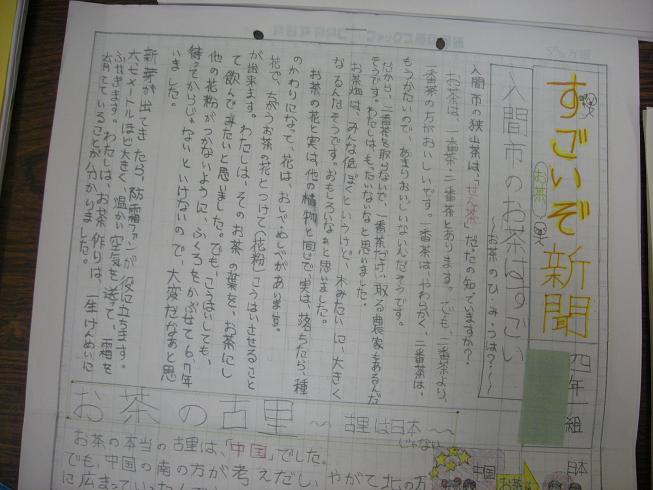 すごいぞ新聞
お茶
四年 組
入間市のお茶はすごい
～お茶のひ・み・つは？～
入間市の狭山茶は、「せん茶」だとの知っていますか？
お茶は、一番茶・二番茶とあります。でも、二番茶より、
一番茶の方がおいしいです。一番茶は、やわらかく、二番茶は、
もうかたいので、あまりおいしくないんだそうです。
だから、二番茶を取らないで、一番茶だけ、取る農家もあるんだ
そうです。わたしは、もったいないなと思いました。
お茶畑は、みんな低ぼくというけど、木みたいに、大きく
なるんだそうです。おもしろいなぁと思いました。
お茶の花と実は、他の植物と同じで、実は、落ちたら、種
のかわりになって、花は、おしべ・めしべがあります。
花で、ちがうお茶の花とつけて(花粉)こうはいさせること
が出来ます。わたしは、そのお茶の葉を、お茶にし
て飲んで来たいと思いました。でも、こうはいしても、
他の花粉がつかないように、ふくろをかぶせて6、7年
待ってからじゃないといけないので、大変だなぁと思
いました。
新芽が出てきたら、防霜ファンが役に立ちます。
六七メートルほど大きく、温かい空気を送って、霜を
ふせぎます。わたしは、お茶作りは、一生けんめいに
育てていることが分かりました。
お茶の古里 ～古里は日本じゃない～
日本
お茶
中国
古里は、「中国」でした。
やがて北の方